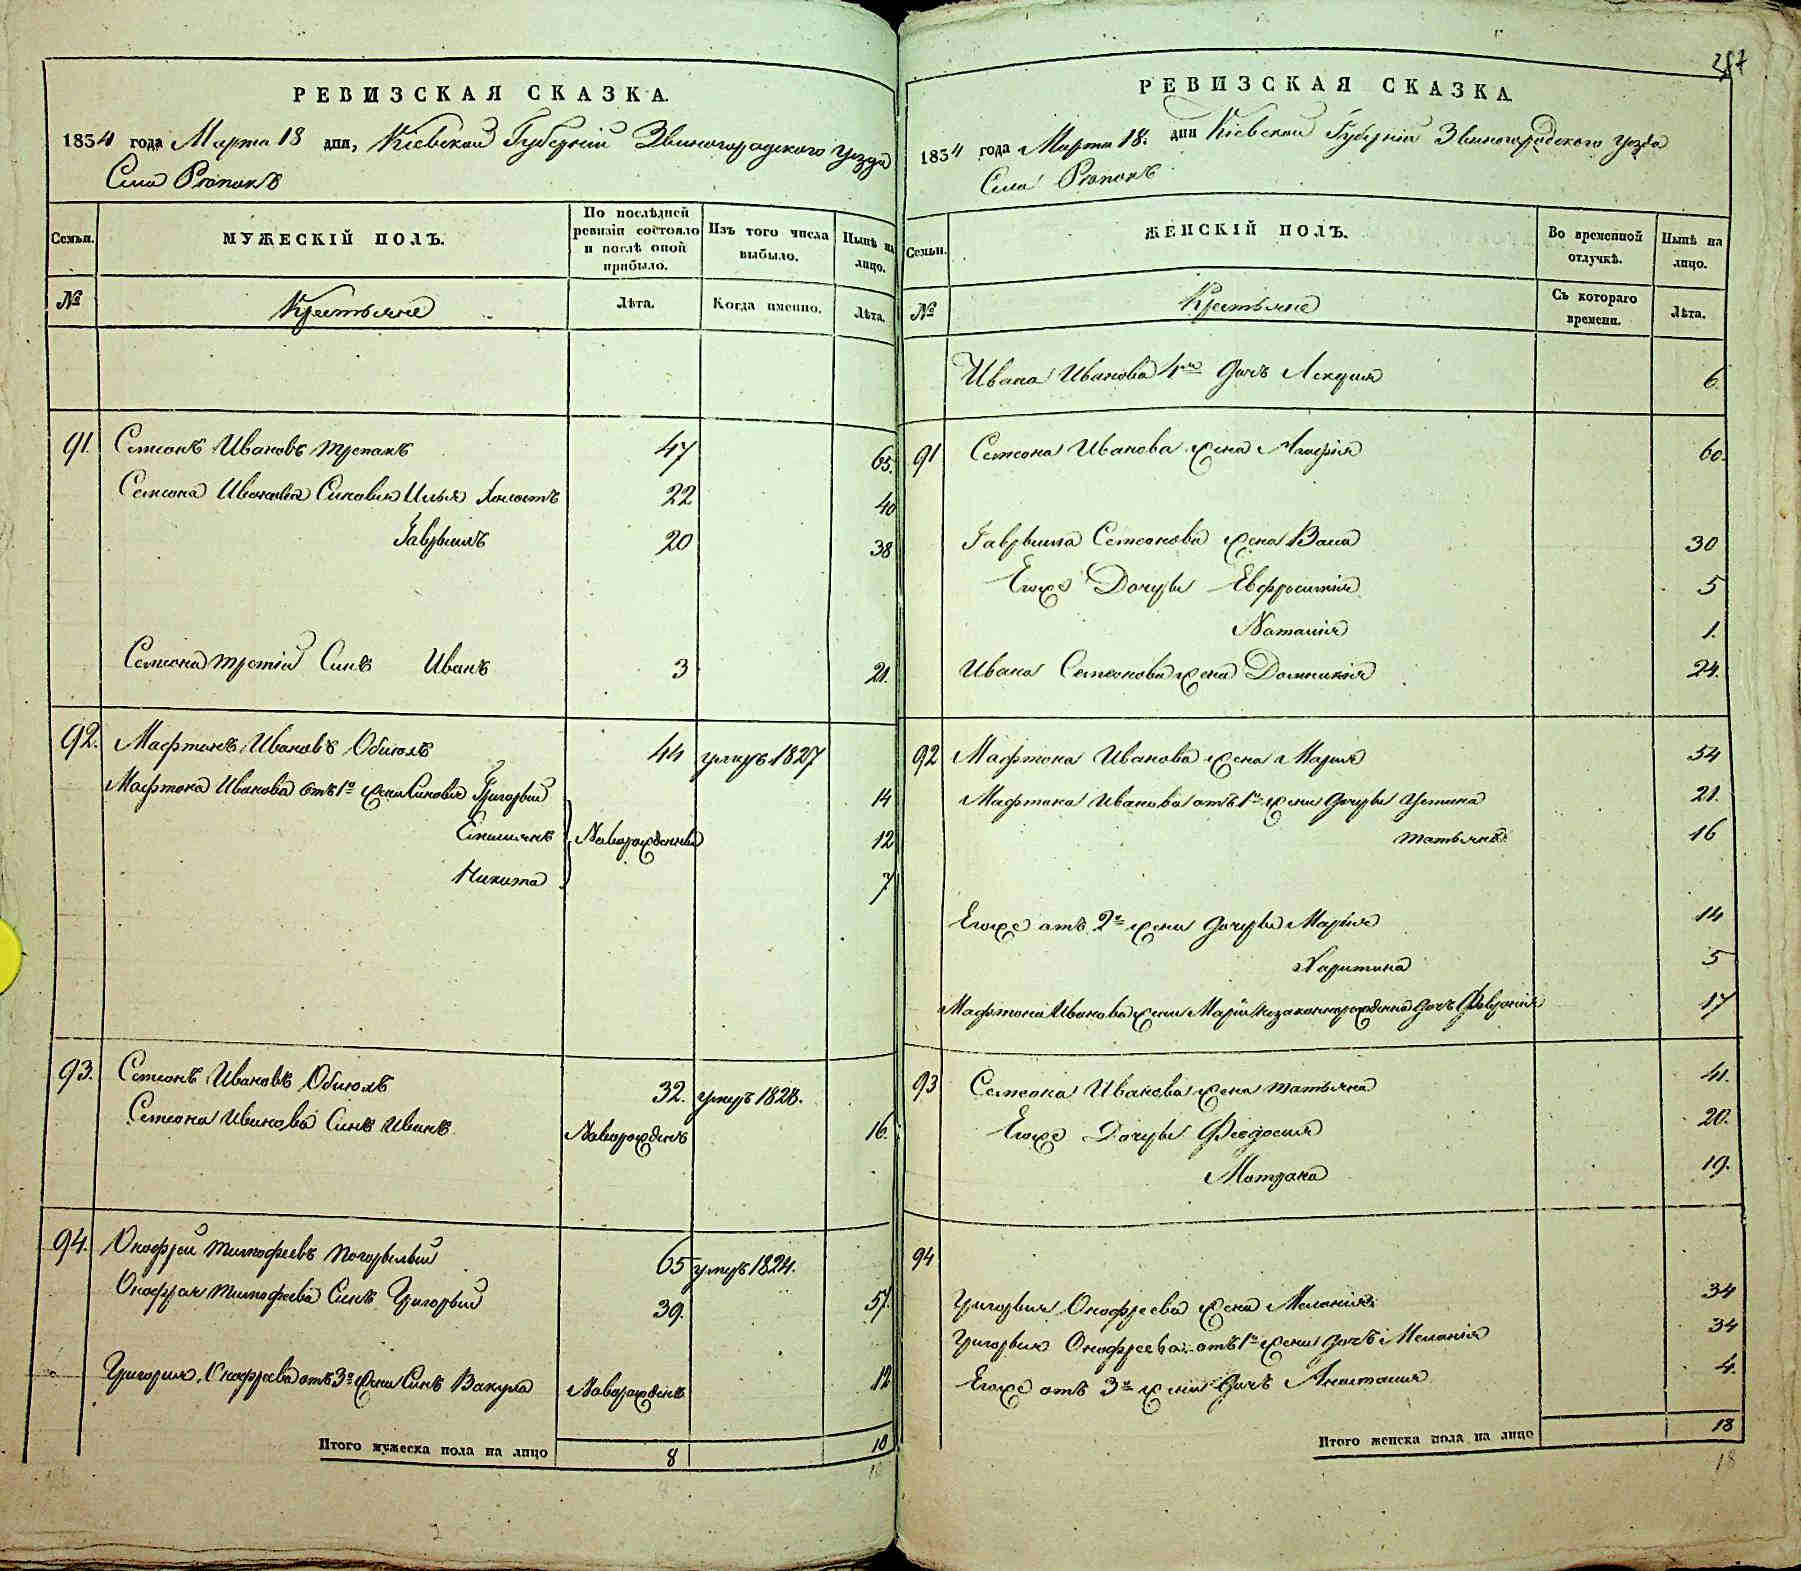 РЕВИЗСКАЯ СКАЗКА.
1834 года Марта 18 дня, Кіевской Губерніи Звиногородского уезда
Села Рѣпокъ
Семьи.
МУЖЕСКІЙ ПОЛЪ.
По послѣдней ревизіи состояло и послѣ оной прибыло.
Изъ того числа выбыло.
Нынѣ на лицо.
№
Крестьяне
Лѣта.
Когда именно.
Лѣта.
91. Семенъ Ивановъ 47 65.
Семена Иванова Синовья Илья Холостъ 22 40
Гаврыилъ 20 38
Семена третій Синъ Иванъ 3 21.
92. Мафтонъ Ивановъ Обиюлъ 44 умеръ 1827
Мафтона Иванова отъ 1й жены Синовья Григорій 14
Емилиянъ Новорожденные 12
Никита 7
93. Семенъ Ивановъ Обиюлъ 32. умеръ 1828.
Семена Иванова Синъ Иванъ Новорожденъ 16.
94. Онофрей Тимофеевъ Погорелый 65 умеръ 1824.
Онофрея Тимофеева Синъ Григорій 39. 57.
Григория Онофреева отъ 3й жены Синъ Вакула Новорожденъ 12
Итого мужеска пола на лицо 8 10
10
257
РЕВИЗСКАЯ СКАЗКА
1834 года Марта 18. дня Кіевской Губерніи Звиногородского уезда
Села Рѣпокъ
Семьи.
ЖЕНСКІЙ ПОЛЪ.
Во временной отлучкѣ.
Нынѣ на лицо.
№
Крестьяне
Съ котораго времени.
Лѣта.
Ивана Иванова 4я дочь 6
91 Семена Иванова жена Агафія 60.
Гаврыила Семенова жена 30
Егоже Дочери Евфросинія 5
Наталія 1.
Ивана Семенова жена Домникія 24.
92 Мафтона Иванова жена Марія 54
Мафтона Иванова отъ 1й жены дочери Устина 21.
Татьяна 16
Егоже отъ 2й жены дочери Марія 14
Харитина 5
Мафтона Иванова жены Маріи незаконнорожденна дочь Февронія 17
93 Семена Иванова жена Татьяна 41.
Егоже Дочери Феодосия 20.
Мотрона 19.
94
Григорія Онофреева жена Меланія 34
Григорія Онофреева отъ 1й жены дочь Меланія 34
Егоже отъ 3й жены дочь Анастасия 4.
Итого женска пола на лицо 18
18